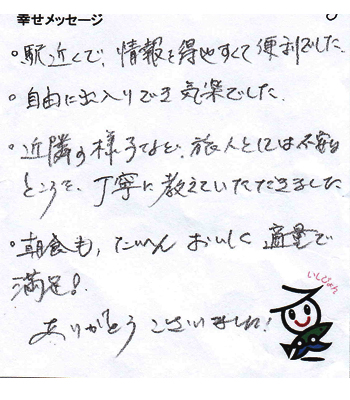 幸せメッセージ
。駅近くで、情報を得やすくて便利でした。
。自由に出入りでき気楽でした。
。近隣の様子などで、旅人としては不安な
ところを、丁寧に教えていただきました
。朝食も、たいへんおいしく適量で
満足!
ありがとうございました!
いしぴょん